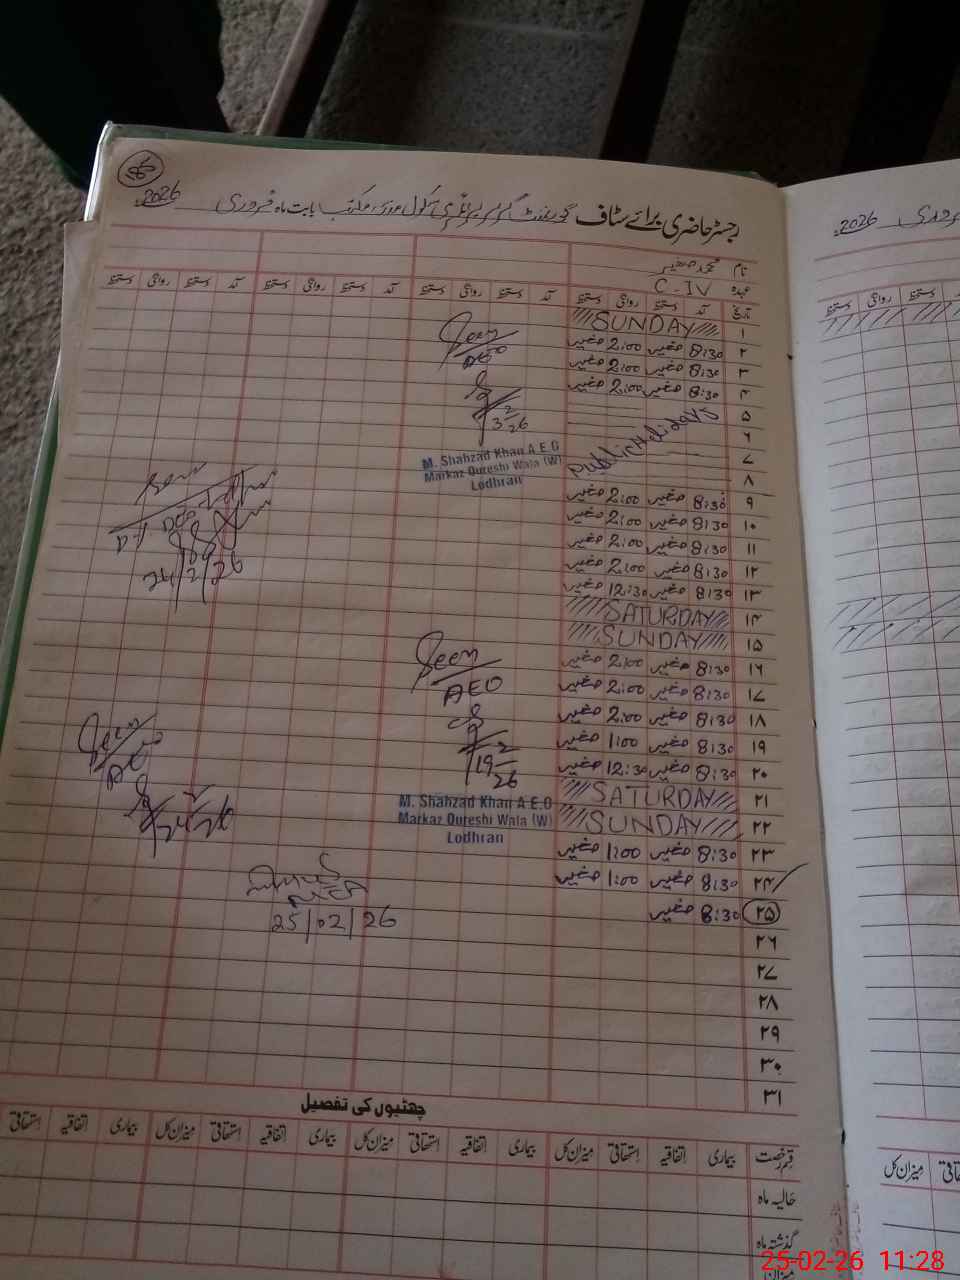 2026
رجسٹر حاضری برائے سٹاف گورنمنٹ سکول بابت ماہ فروری
نام
عہدہ C-IV
تاریخ آمد دستخط روانگی دستخط آمد دستخط روانگی دستخط آمد دستخط روانگی دستخط آمد دستخط روانگی دستخط
۱ SUNDAY
۲ 8:30 صغیر 2:00 صغیر
۳ 8:30 صغیر 2:00 صغیر
۴ 8:30 صغیر 2:00 صغیر
۵
۶ Public Holidays
۷
۸
۹ 8:30 صغیر 2:00 صغیر
۱۰ 8:30 صغیر 2:00 صغیر
۱۱ 8:30 صغیر 2:00 صغیر
۱۲ 8:30 صغیر 2:00 صغیر
۱۳ 8:30 صغیر 12:30 صغیر
۱۴ SATURDAY
۱۵ SUNDAY
۱۶ 8:30 صغیر 2:00 صغیر
۱۷ 8:30 صغیر 2:00 صغیر
۱۸ 8:30 صغیر 2:00 صغیر
۱۹ 8:30 صغیر 1:00 صغیر
۲۰ 8:30 صغیر 12:30 صغیر
۲۱ SATURDAY
۲۲ SUNDAY
۲۳ 8:30 صغیر 1:00 صغیر
۲۴ 8:30 صغیر 1:00 صغیر
۲۵ 8:30 صغیر
۲۶
۲۷
۲۸
۲۹
۳۰
۳۱
Seen
AEO
3 2 26
M. Shahzad Khan A.E.O
Markaz Qureshi Wala (W)
Lodhran
Seen
24/2/26
Seen
AEO
19 2 26
M. Shahzad Khan A.E.O
Markaz Qureshi Wala (W)
Lodhran
Seen
AEO
25/02/26
چھٹیوں کی تفصیل
قسم رخصت بیماری اتفاقیہ استحقاقی میزان کل بیماری اتفاقیہ استحقاقی میزان کل بیماری اتفاقیہ استحقاقی میزان کل بیماری اتفاقیہ استحقاقی
حالیہ ماہ
گذشتہ ماہ
میزان
2026
میزان کل
25-02-26 11:28